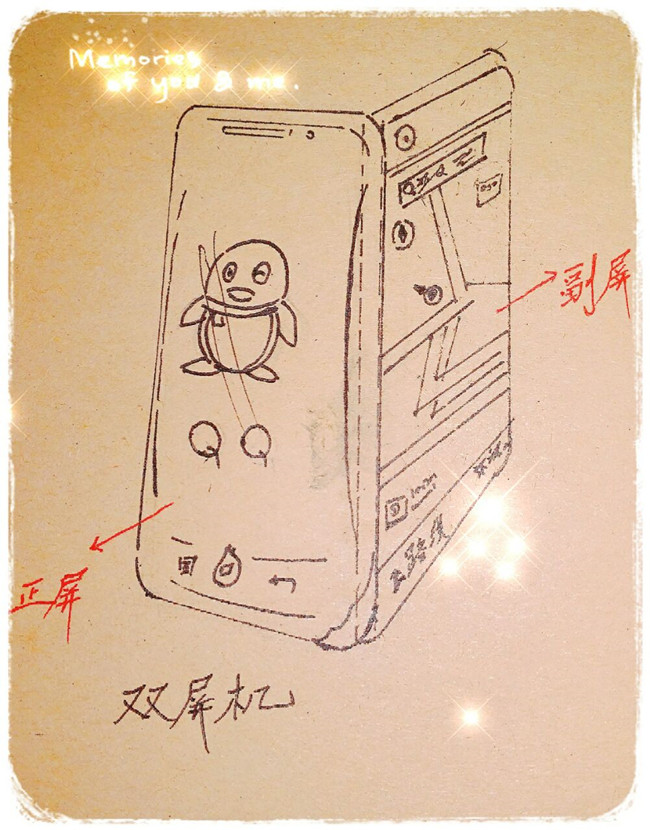 Memories
of you & me.
副屏
QQ
正屏
双屏机